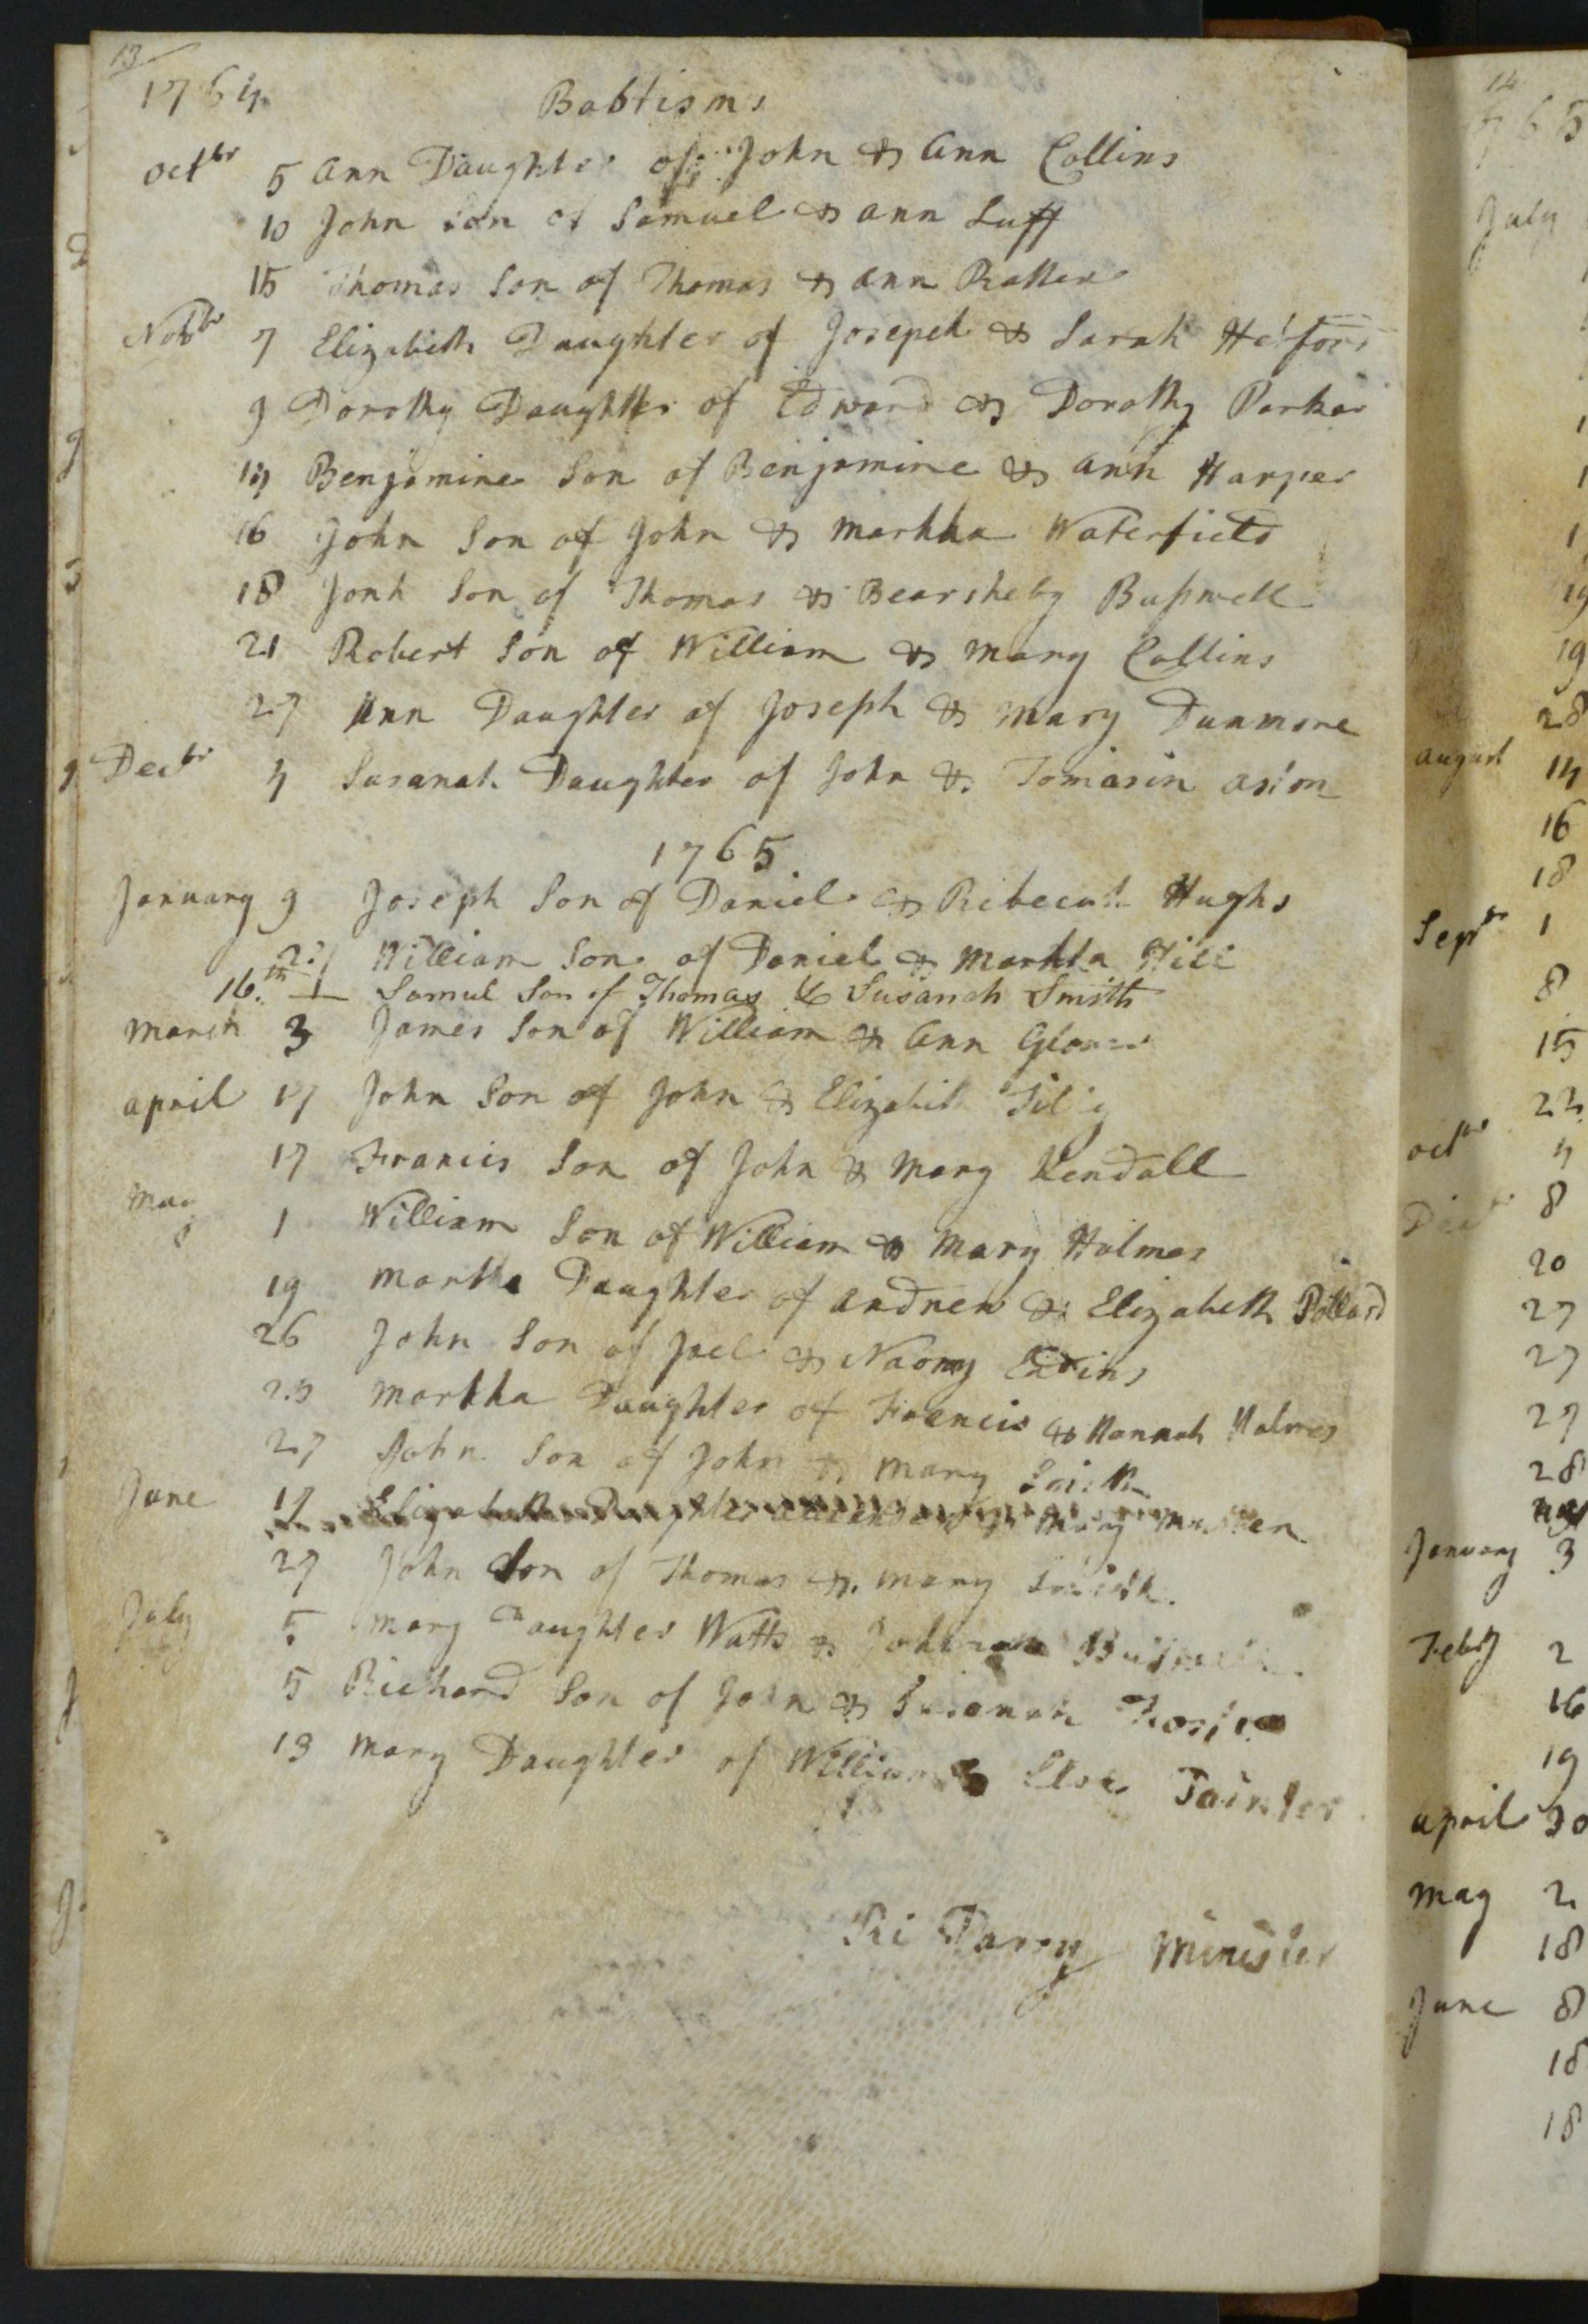 13
1764 Babtisms
Octbr 5 Ann Daughter of John & Ann Collins
10 John Son of Samuel & Ann Luff
15 Thomas Son of Thomas & Ann
Novbr 7 Elizabeth Daughter of Josepeh & Sarah
9 Dorothy Daughter of Edward & Dorothy Parker
14 Benjamine Son of Benjamine & Ann Harper
16 John Son of John & Markha Waterfield
18 Jonh Son of Thomas & Bearsheby Buswell
21 Robert Son of William & Mary Collins
27 Ann Daughter of Joseph & Mary Dunmore
Decbr 4 Susanah Daughter of John & Tomasin
1765
January 9 Joseph Son of Daniel & Rebecah Hughs
William Son of Daniel & Markha Hill
16th Samul Son of Thomas & Susanah Smith
March 3 James Son of William & Ann
April 17 John Son of John &
17 Francis Son of John & Mary Kendall
May 1 William Son of William & Mary Holmes
19 Martha Daughter of Andrew & Elizabeth Pollard
26 John Son of Joel & Naomy
Martha Daughter of Francis & Hannah Holmes
27 John Son of John & Mary Smith
June 17 Elizabeth Daughter Mary
27 John Son of Thomas & Mary Smith
July 5 Mary Daughter Watts &
5 Richard Son of John & Susanah
13 Mary Daughter of William & Tainter
Ri Parry Minister
14
1765
July
1
19
19
28
August 14
16
18
Septbr 1
8
15
22
Octbr 4
Decbr 8
20
27
27
27
28
January 3
Febry 2
16
19
April 30
May 2
18
June 8
18
18